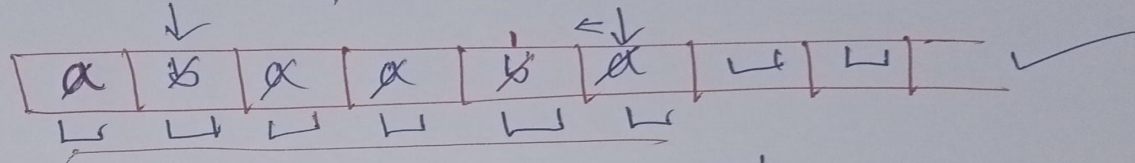 ↓ ←↓
a b a a b a ⊔ ⊔ ✓
⊔ ⊔ ⊔ ⊔ ⊔ ⊔